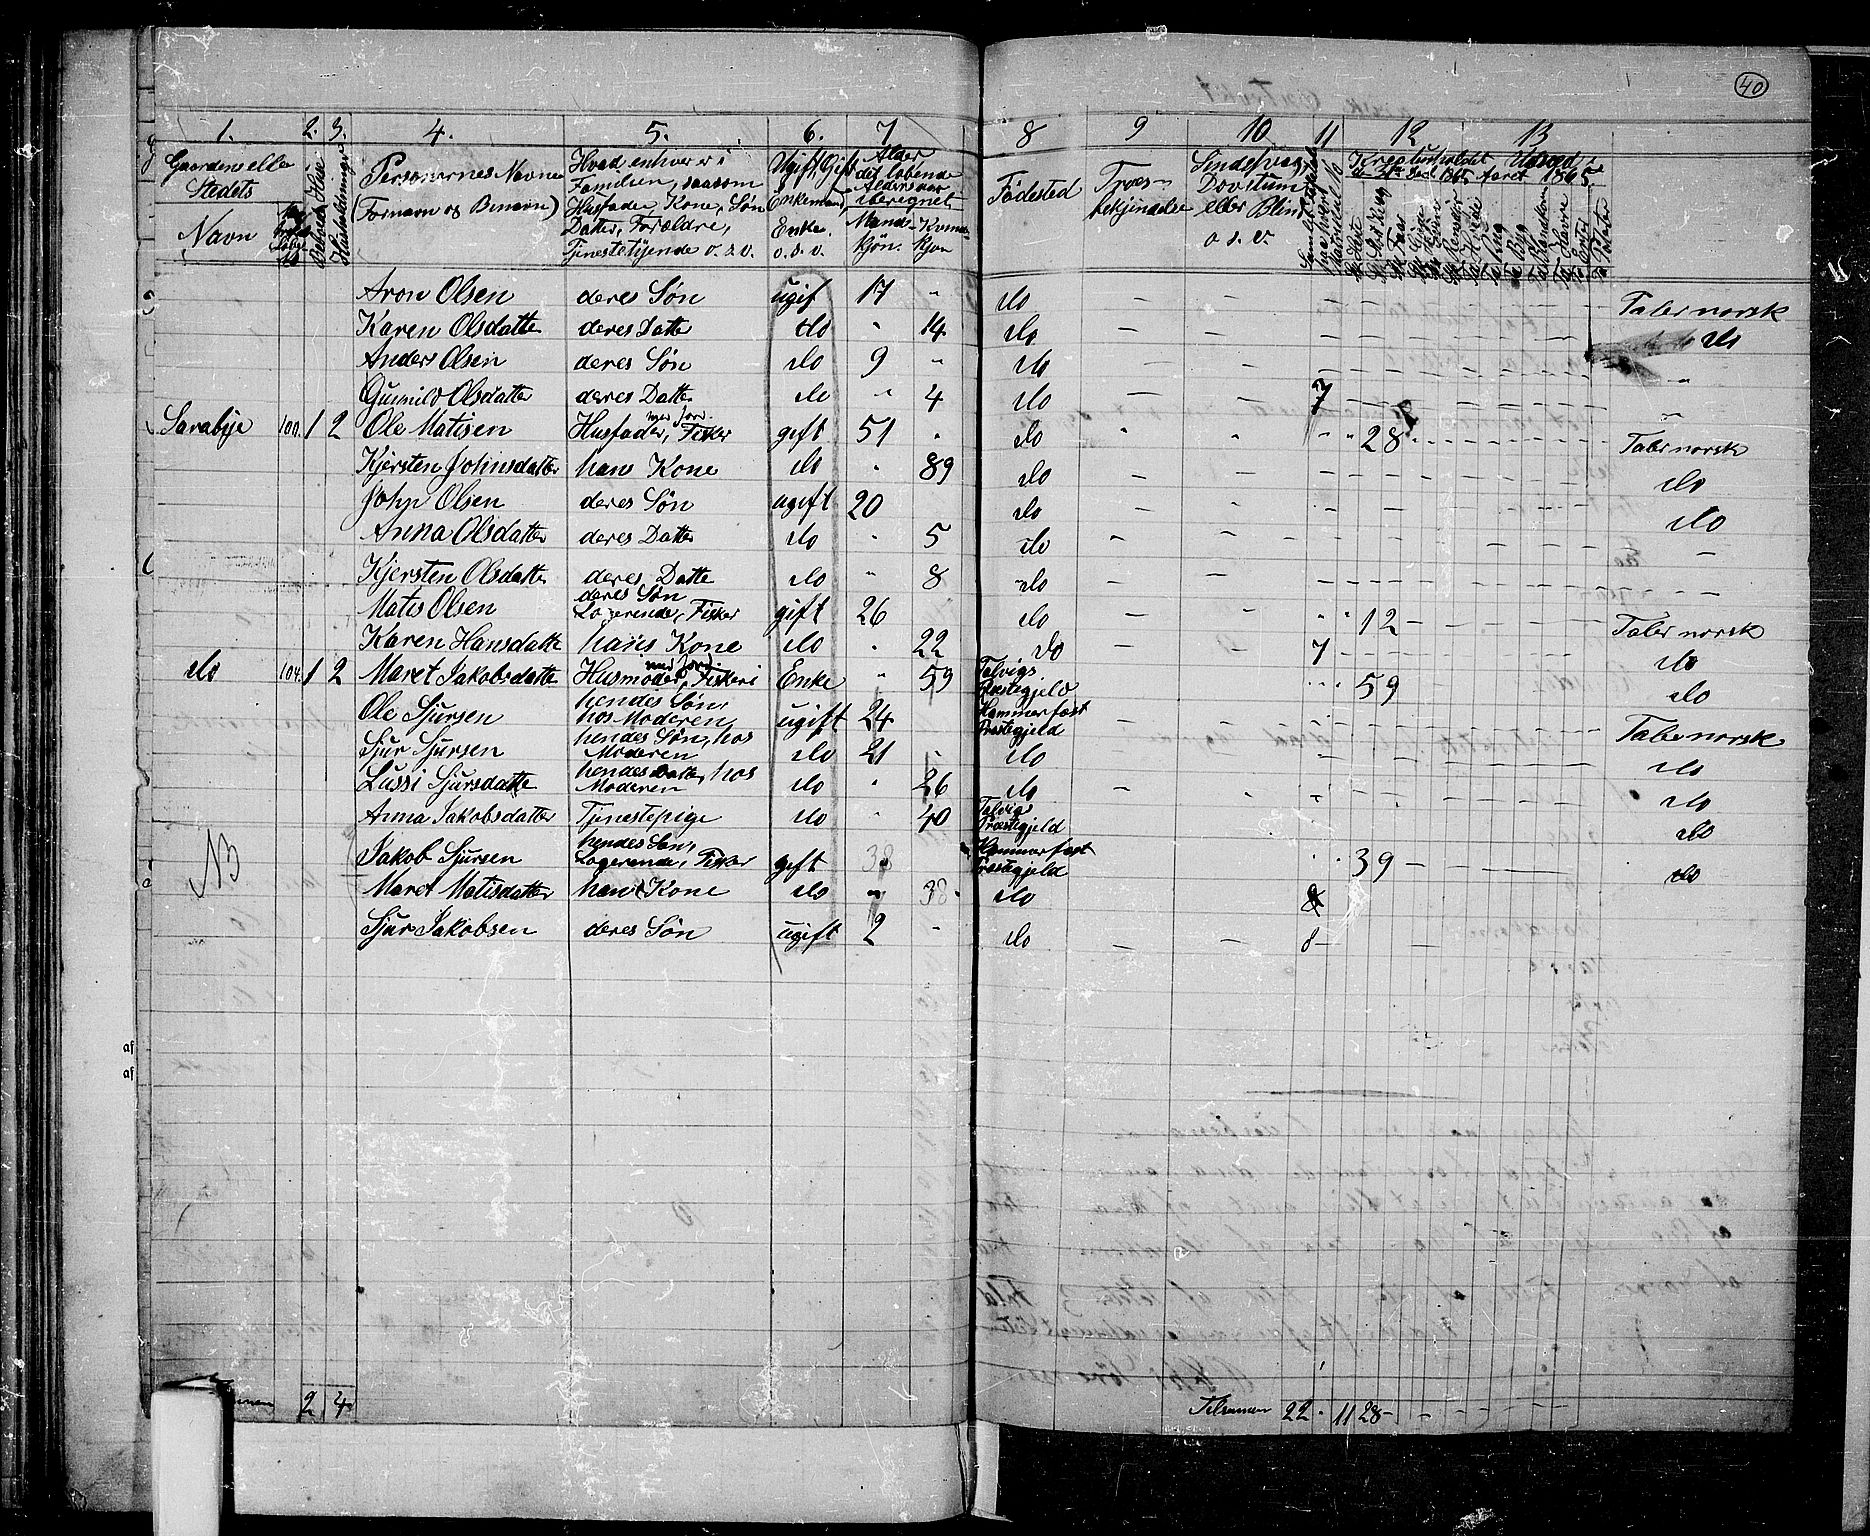 40
1. 2. 3. 4. 5. 6. 7 8 9 10 11 12 13
Gaardens eller Stedets
Navn
Beboede Huse
Husholdninger
Personernes Navne
(Fornavn og Benavn)
Hvad enhver er i
Familien, saasom
Husfader, Kone, Søn
Datter, Forældre,
Tjenestetyende o.s.v.
Ugift, Gift
Enkemand,
Enke.
o.s.v.
Alder
det løbende
Aldersaar
iberegnet
Mand-kjøn. Kvinde-kjøn
Fødested
Troes-bekjendelse
Sindssvag,
Dovstum
eller Blind
o.s.v.
Kreaturholdet
Udsæd i
Aaret 1865
Aron Olsen deres Søn ugif 17 " do — — Taler norsk
Karen Olsdatte deres Datte do " 14 do — — do
Anders Olsen deres Søn do 9 " do — — "
Gunnild Olsdatter deres Datte do " 4 do — — 7 "
Sarabye 100. 1 2 Ole Matisen Husfader, med jord. Fisker gift 51 " do " " 28 Taler norsk
Kjersten Johnsdatter hans Kone do " 89 do — — do
John Olsen deres Søn ugift 20 do — — do
Anna Olsdatter deres Datte do " 5 do — — —
Kjersten Olsdatte deres Datte do " 8 do — — —
Matis Olsen deres Søn Logerende, Fisker gift 26 do — — 12 Taler norsk
Karen Hansdatte hans Kone do " 22 do — 7 do
do 104. 1 2 Maret Jakobsdatte Husmoder, med jord. Fiskeri Enke " 59 Talvigs Præstegjeld 59 do
Ole Sjursen hendes Søn, hos Moderen ugift 24 Hammerfest Præstegjeld — — Taler norsk
Sjur Sjursen hendes Søn, hos Moderen do 21 do — — do
Lussi Sjursdatte hendes Datte, hos Moderen do " 26 do — — do
Anna Jakobsdatter Tjenestepige do " 40 Talvig Præstegjeld do
NB Jakob Sjursen hendes Søn, Logerende, Fisker gift 38 Hammerfest Præstegjeld 39 — do
Maret Matisdatter hans Kone do " 38 do 8
Sjur Jakobsen deres Søn ugift 2 do — — 8 —
af
af
2 4 Tilsamen 22 " 11 28 —